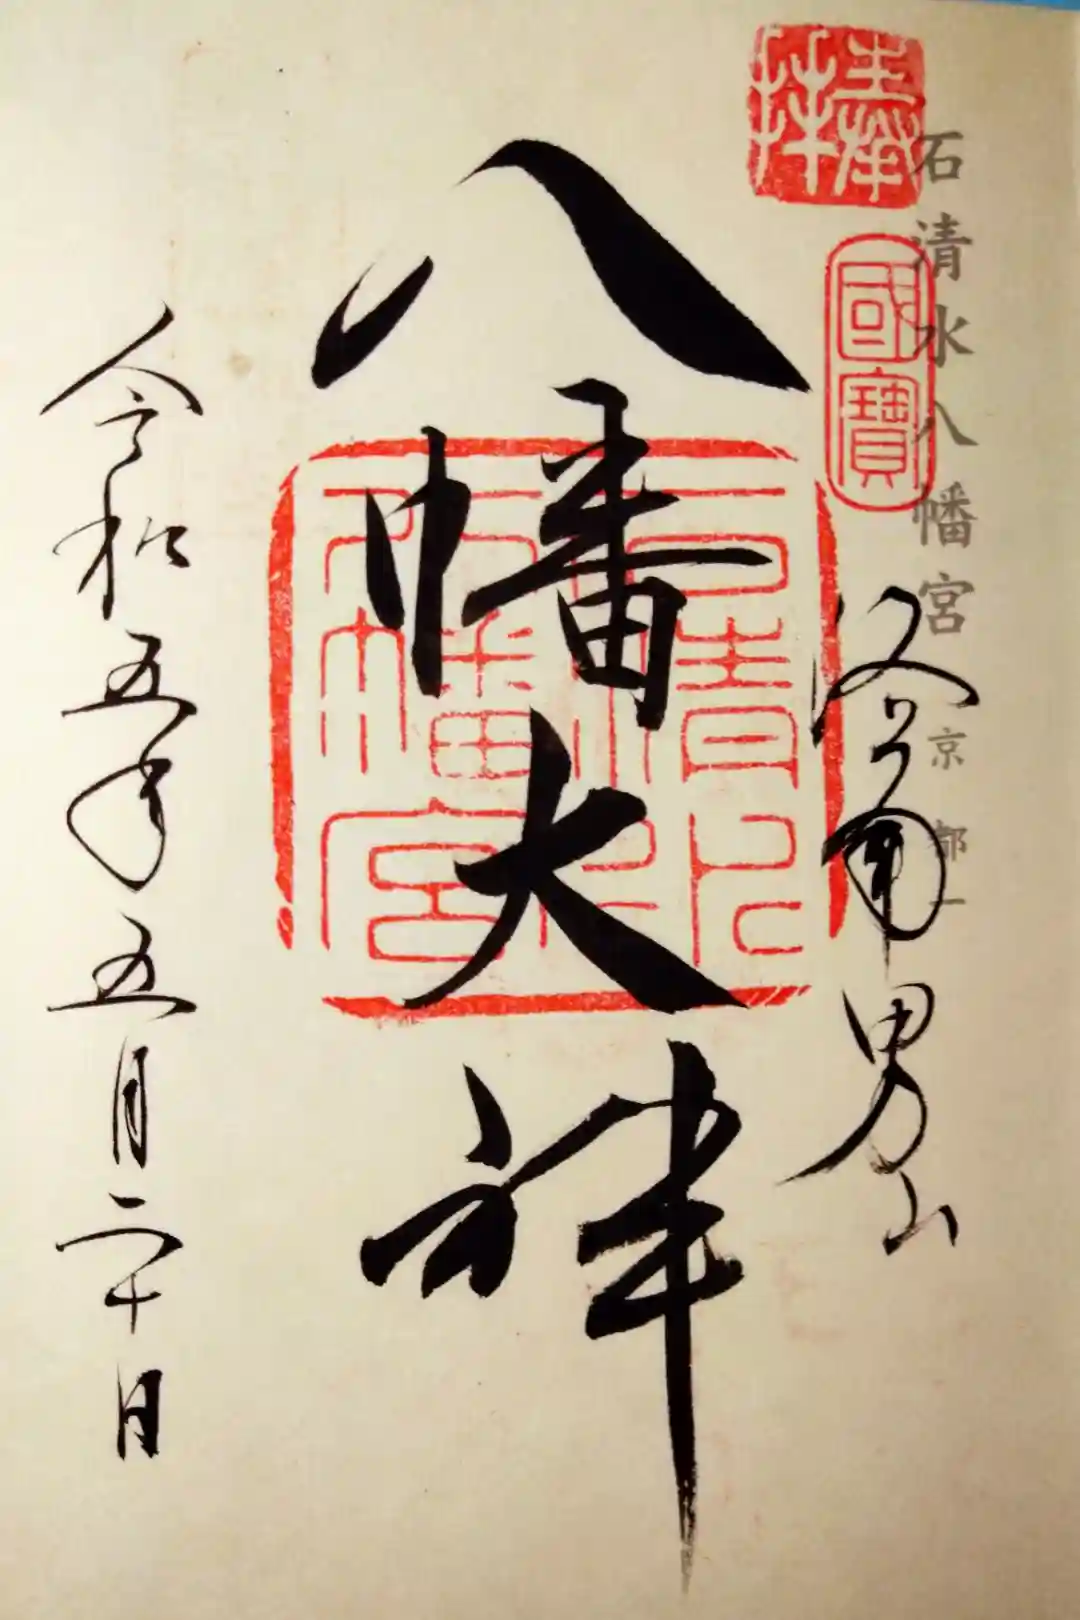 石清水八幡宮 京都 一
奉拝
國寶
洛南男山
八幡大神
石清水八幡宮
令和五年五月二十日